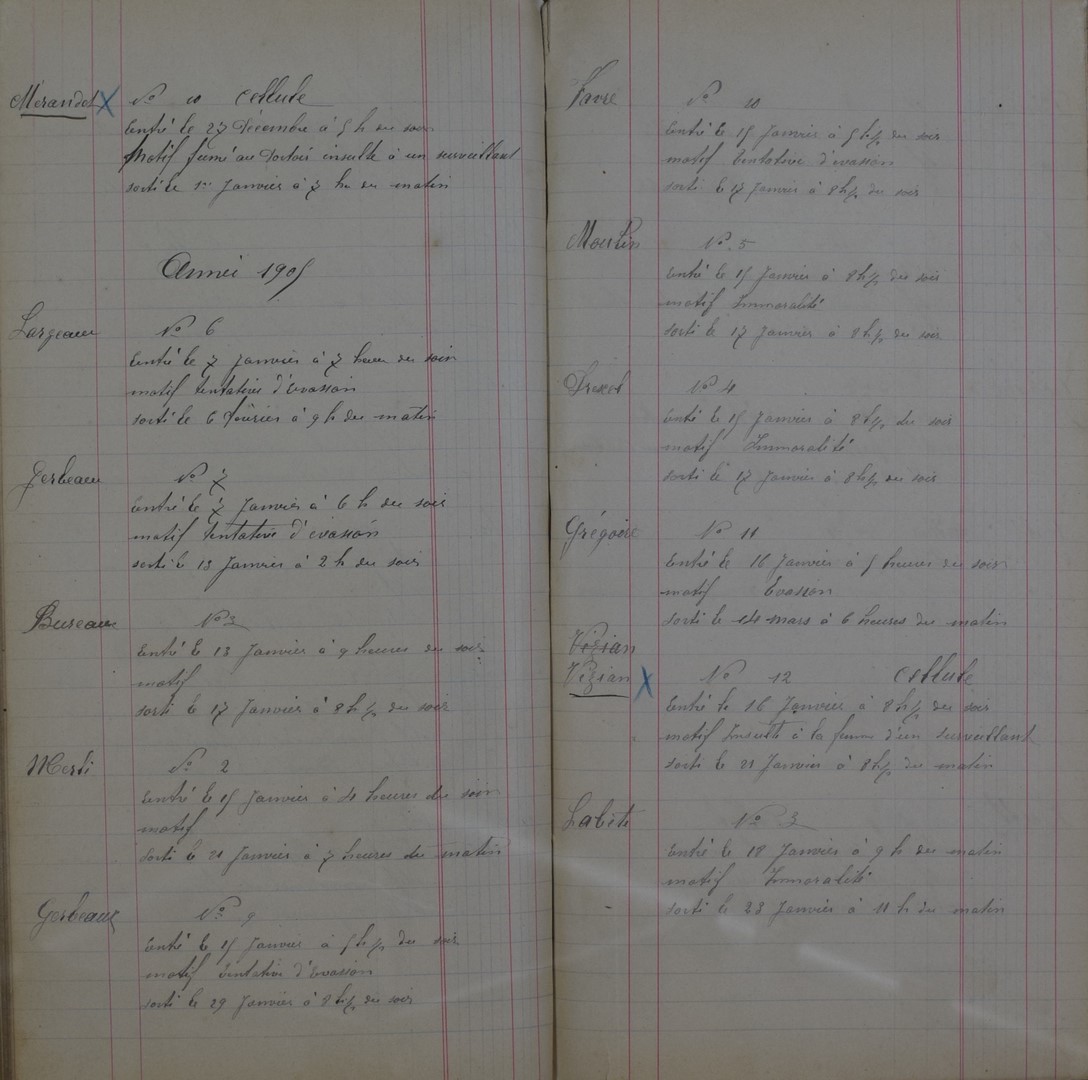 Mérandot X No 10 Cellule
Entré le 27 Décembre à 5 h du soir
Motif fumé au Dortoir insulte à un surveillant
sorti le 1er Janvier à 7 h du matin
Année 1905
Largeau No 6
Entré le 7 Janvier à 7 heure du soir
motif tentative d'Evasion
sorti le 6 Février à 9 h du matin
Gerbeau No 7
Entré le 7 Janvier à 6 h du soir
motif tentative d'évasion
sorti le 13 Janvier à 2 h du soir
Bureau No 3
Entré le 13 Janvier à 9 heures du soir
motif
sorti le 17 Janvier à 8 h ½ du soir
Merli No 2
Entré le 15 Janvier à 4 heures du soir
motif
sorti le 21 Janvier à 7 heures du matin
Gerbeaux No 9
Entré le 15 Janvier à 5 h ½ du soir
motif tentative d'Evasion
sorti le 29 Janvier à 8 h ½ du soir
Favre No 10
Entré le 15 Janvier à 5 h ½ du soir
motif tentative d'évasion
sorti le 17 Janvier à 8 h ½ du soir
No 5
Entré le 15 Janvier à 8 h ½ du soir
motif Immoralité
sorti le 17 Janvier à 8 h ½ du soir
No 4
Entré le 15 Janvier à 8 h ½ du soir
motif Immoralité
sorti le 17 Janvier à 8 h ½ du soir
Grégoire No 11
Entré le 16 Janvier à 5 heures du soir
motif Evasion
sorti le 14 mars à 6 heures du matin
Vizian
Vizian X No 12 Cellule
Entré le 16 Janvier à 8 h ½ du soir
motif Insulte à la femme d'un surveillant
sorti le 21 Janvier à 8 h ½ du matin
Labète No 3
Entré le 18 Janvier à 9 h du matin
motif Immoralité
sorti le 23 Janvier à 11 h du matin